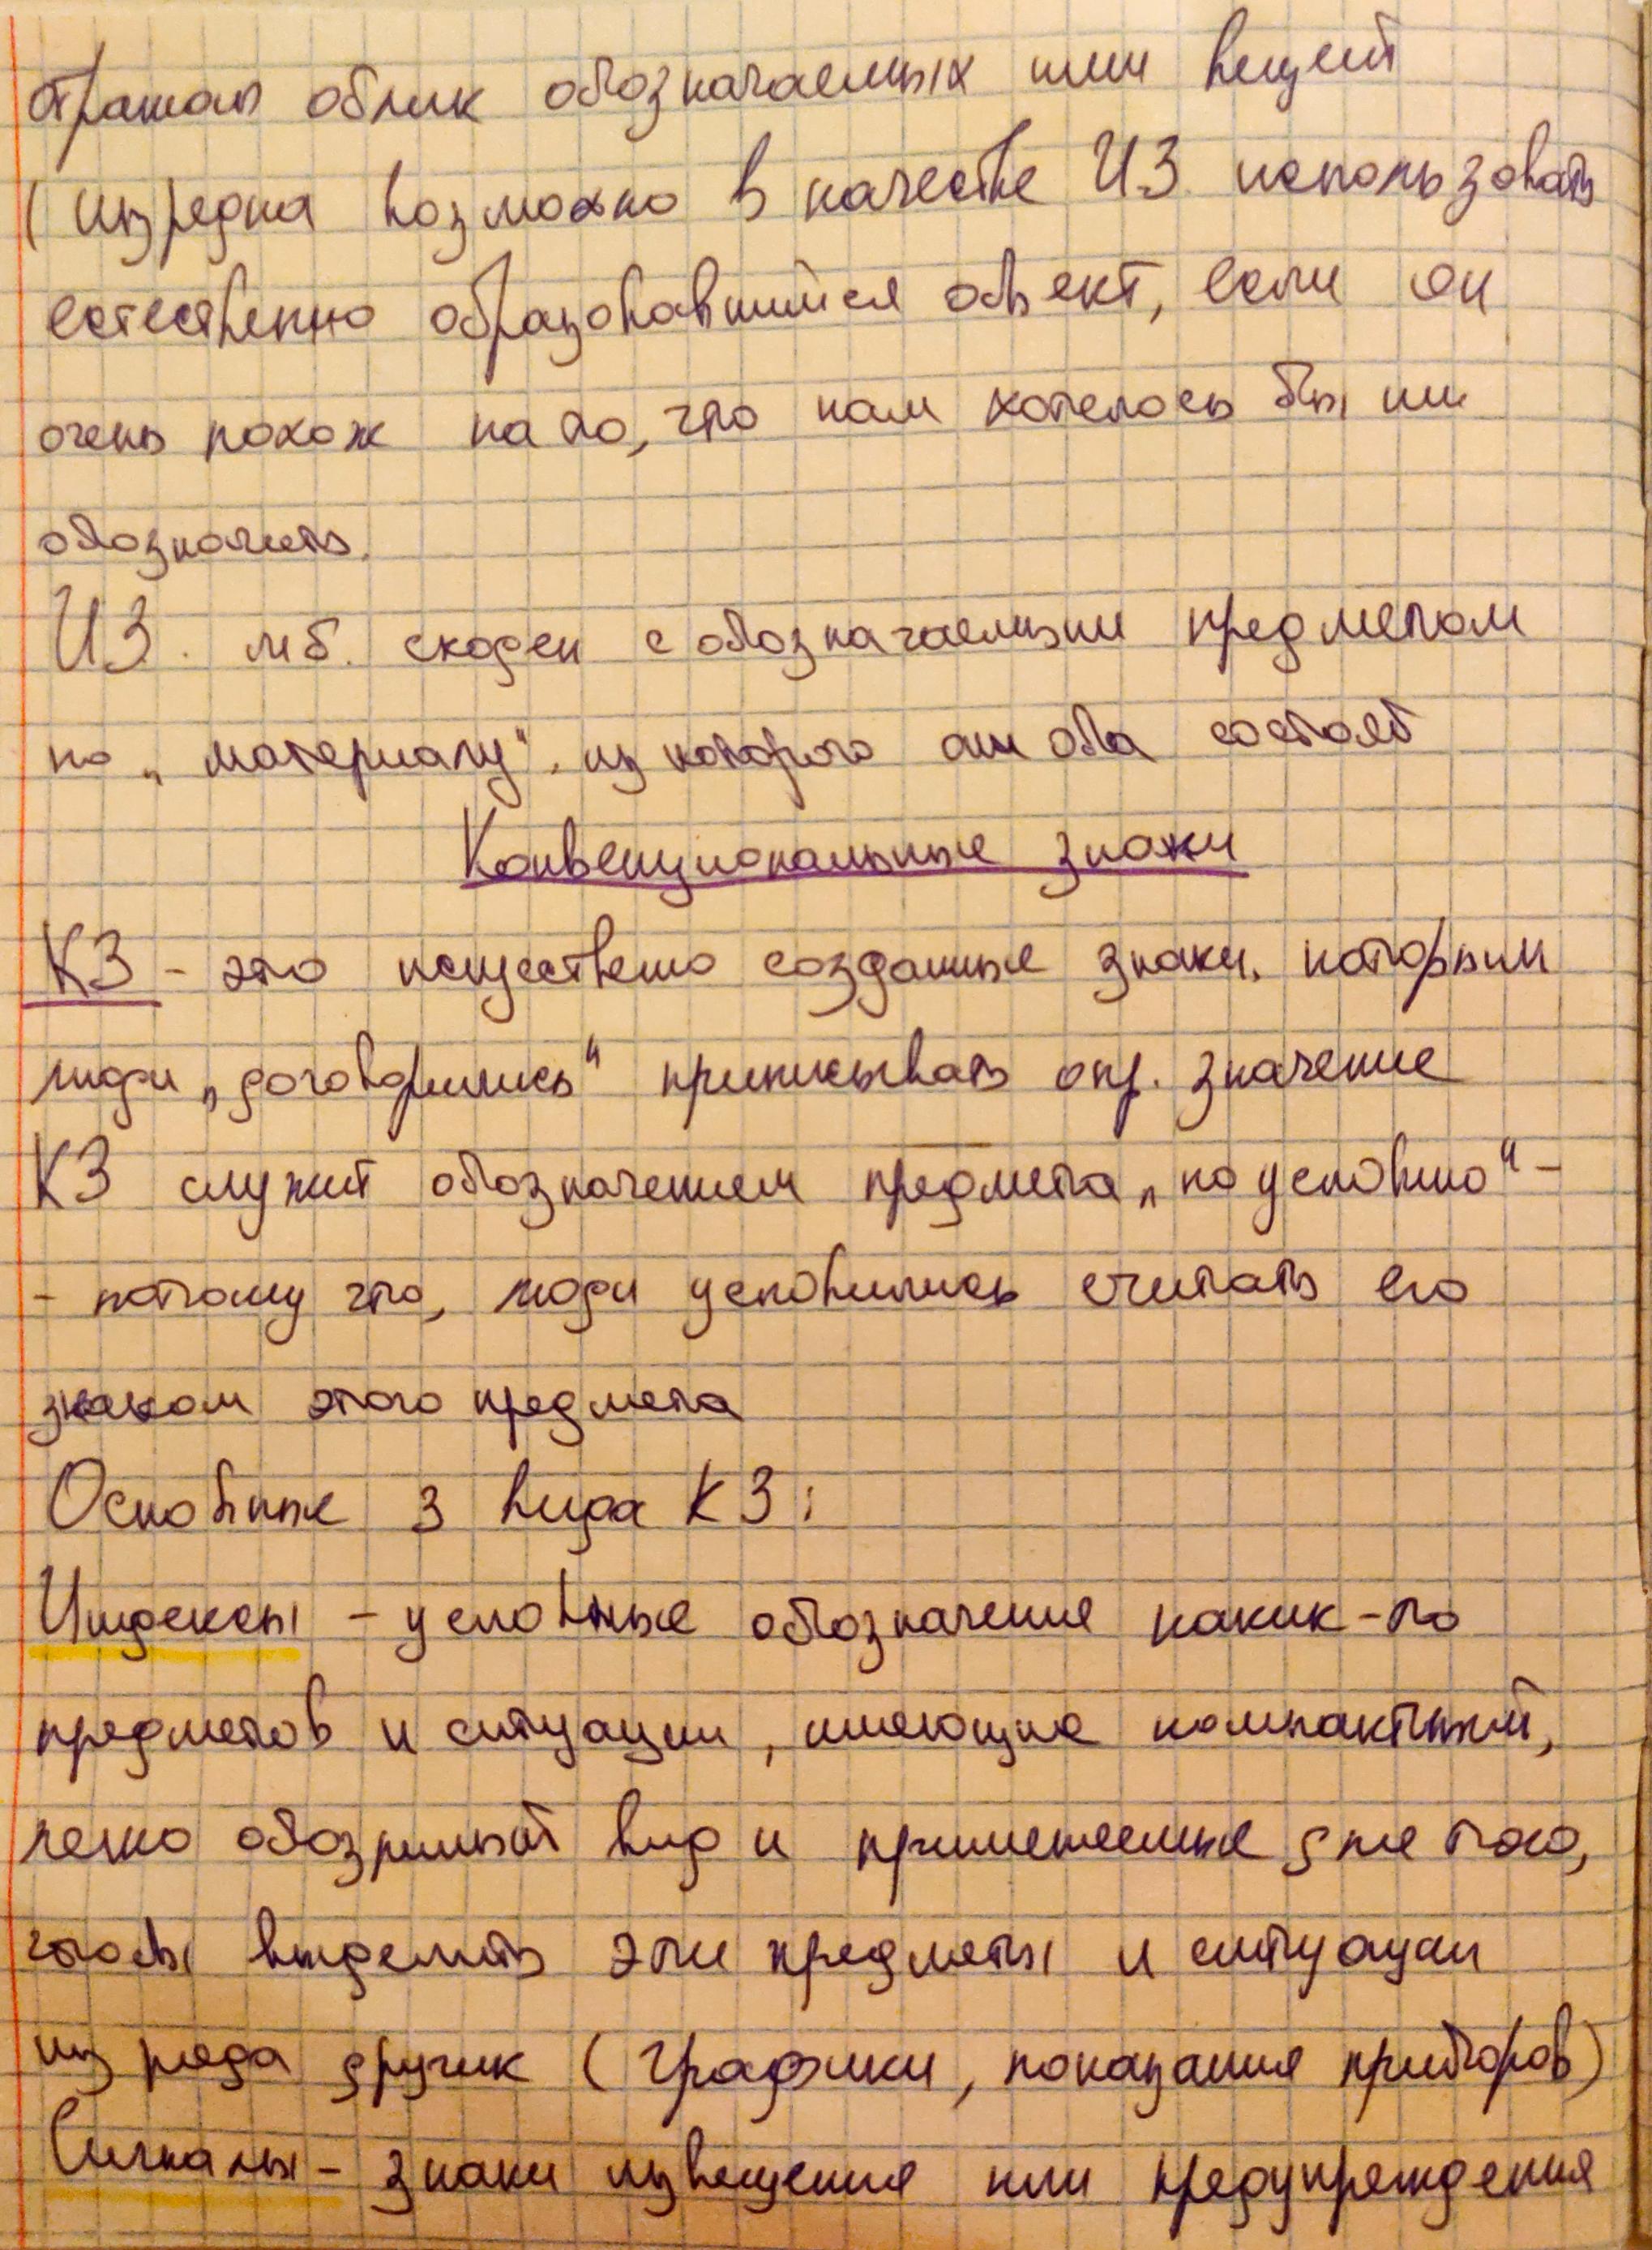 отражая облик обозначаемых ими вещей
(изредка возможно в качестве ИЗ использовать
естественно образовавшийся объект, если он
очень похож на то, что нам хотелось бы им
обозначить.
ИЗ. мб. сходен с обозначаемым предметом
по „материалу", из которого они оба состоят
Конвенциональные знаки
КЗ - это искусственно созданные знаки, которым
люди „договорились" приписывать опр. значение
КЗ служит обозначением предмета „по условию" -
- потому что, люди условились считать его
знаком этого предмета
Основные 3 вида КЗ:
Индексы - условные обозначения каких-то
предметов и ситуации, имеющие компактный,
легко обозримый вид и применяемые для того,
чтобы выделить эти предметы и ситуации
из ряда других (графики, показания приборов)
Сигналы - знаки извещения или предупреждения